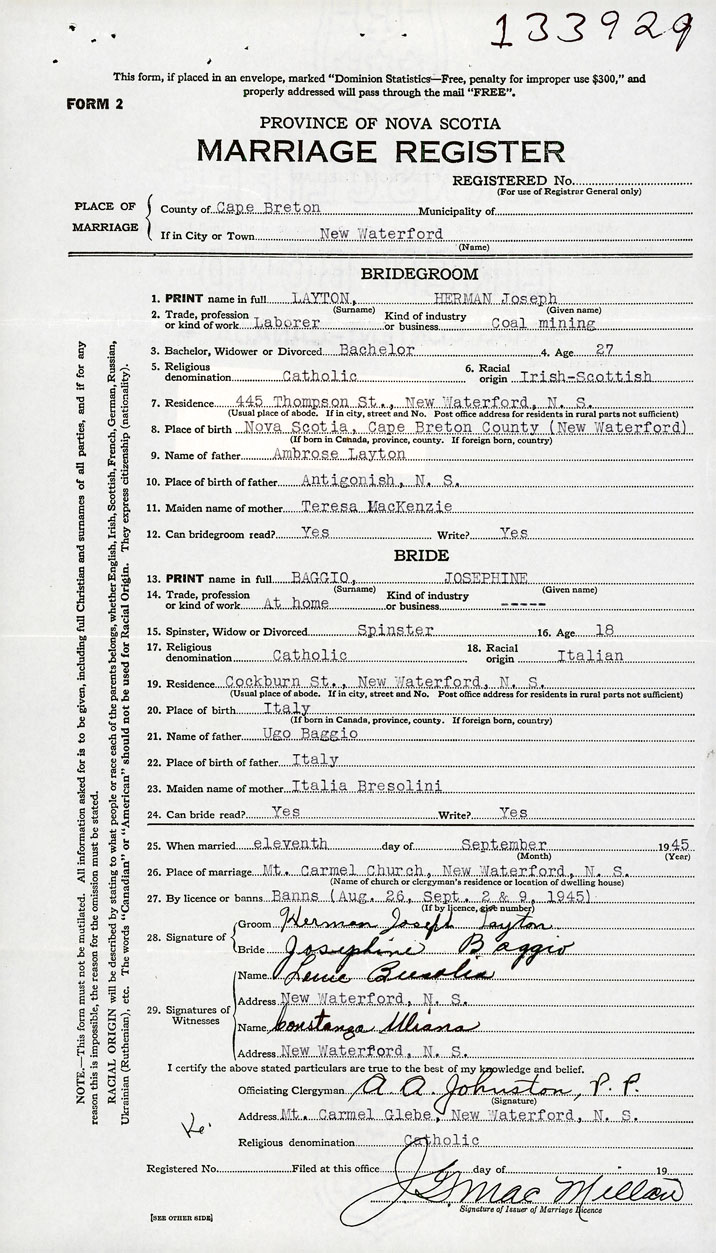 133929
This form, if placed in an envelope, marked “Dominion Statistics—Free, penalty for improper use $300,” and
properly addressed will pass through the mail “FREE”.
FORM 2
PROVINCE OF NOVA SCOTIA
MARRIAGE REGISTER
REGISTERED No.
(For use of Registrar General only)
PLACE OF MARRIAGE
County of Cape Breton Municipality of
If in City or Town New Waterford
(Name)
BRIDEGROOM
1. PRINT name in full LAYTON, HERMAN Joseph
(Surname) (Given name)
2. Trade, profession or kind of work Laborer Kind of industry or business Coal mining
3. Bachelor, Widower or Divorced Bachelor 4. Age 27
5. Religious denomination Catholic 6. Racial origin Irish-Scottish
7. Residence 445 Thompson St., New Waterford, N. S.
(Usual place of abode. If in city, street and No. Post office address for residents in rural parts not sufficient)
8. Place of birth Nova Scotia, Cape Breton County (New Waterford)
(If born in Canada, province, county. If foreign born, country)
9. Name of father Ambrose Layton
10. Place of birth of father Antigonish, N. S.
11. Maiden name of mother Teresa MacKenzie
12. Can bridegroom read? Yes Write? Yes
BRIDE
13. PRINT name in full BAGGIO, JOSEPHINE
(Surname) (Given name)
14. Trade, profession or kind of work At home Kind of industry or business -----
15. Spinster, Widow or Divorced Spinster 16. Age 18
17. Religious denomination Catholic 18. Racial origin Italian
19. Residence Cockburn St., New Waterford, N. S.
(Usual place of abode. If in city, street and No. Post office address for residents in rural parts not sufficient)
20. Place of birth Italy
(If born in Canada, province, county. If foreign born, country)
21. Name of father Ugo Baggio
22. Place of birth of father Italy
23. Maiden name of mother Italia Bresolini
24. Can bride read? Yes Write? Yes
25. When married eleventh day of September 1945
(Month) (Year)
26. Place of marriage Mt. Carmel Church, New Waterford, N. S.
(Name of church or clergyman's residence or location of dwelling house)
27. By licence or banns Banns (Aug. 26, Sept. 2 & 9, 1945)
(If by licence, give number)
28. Signature of
Groom Herman Joseph Layton
Bride Josephine Baggio
29. Signatures of Witnesses
Name
Address New Waterford, N. S.
Name Constanza Uliana
Address New Waterford, N. S.
I certify the above stated particulars are true to the best of my knowledge and belief.
Officiating Clergyman A A. Johnston, P. P.
(Signature)
Address Mt. Carmel Glebe, New Waterford, N. S.
Religious denomination Catholic
Registered No. Filed at this office day of 19
J G MacMillan
Signature of Issuer of Marriage Licence
[SEE OTHER SIDE]
NOTE.—This form must not be mutilated. All information asked for is to be given, including full Christian and surnames of all parties, and if for any
reason this is impossible, the reason for the omission must be stated.
RACIAL ORIGIN will be described by stating to what people or race each of the parents belongs, whether English, Irish, Scottish, French, German, Russian,
Ukrainian (Ruthenian), etc. The words “Canadian” or “American” should not be used for Racial Origin. They express citizenship (nationality).